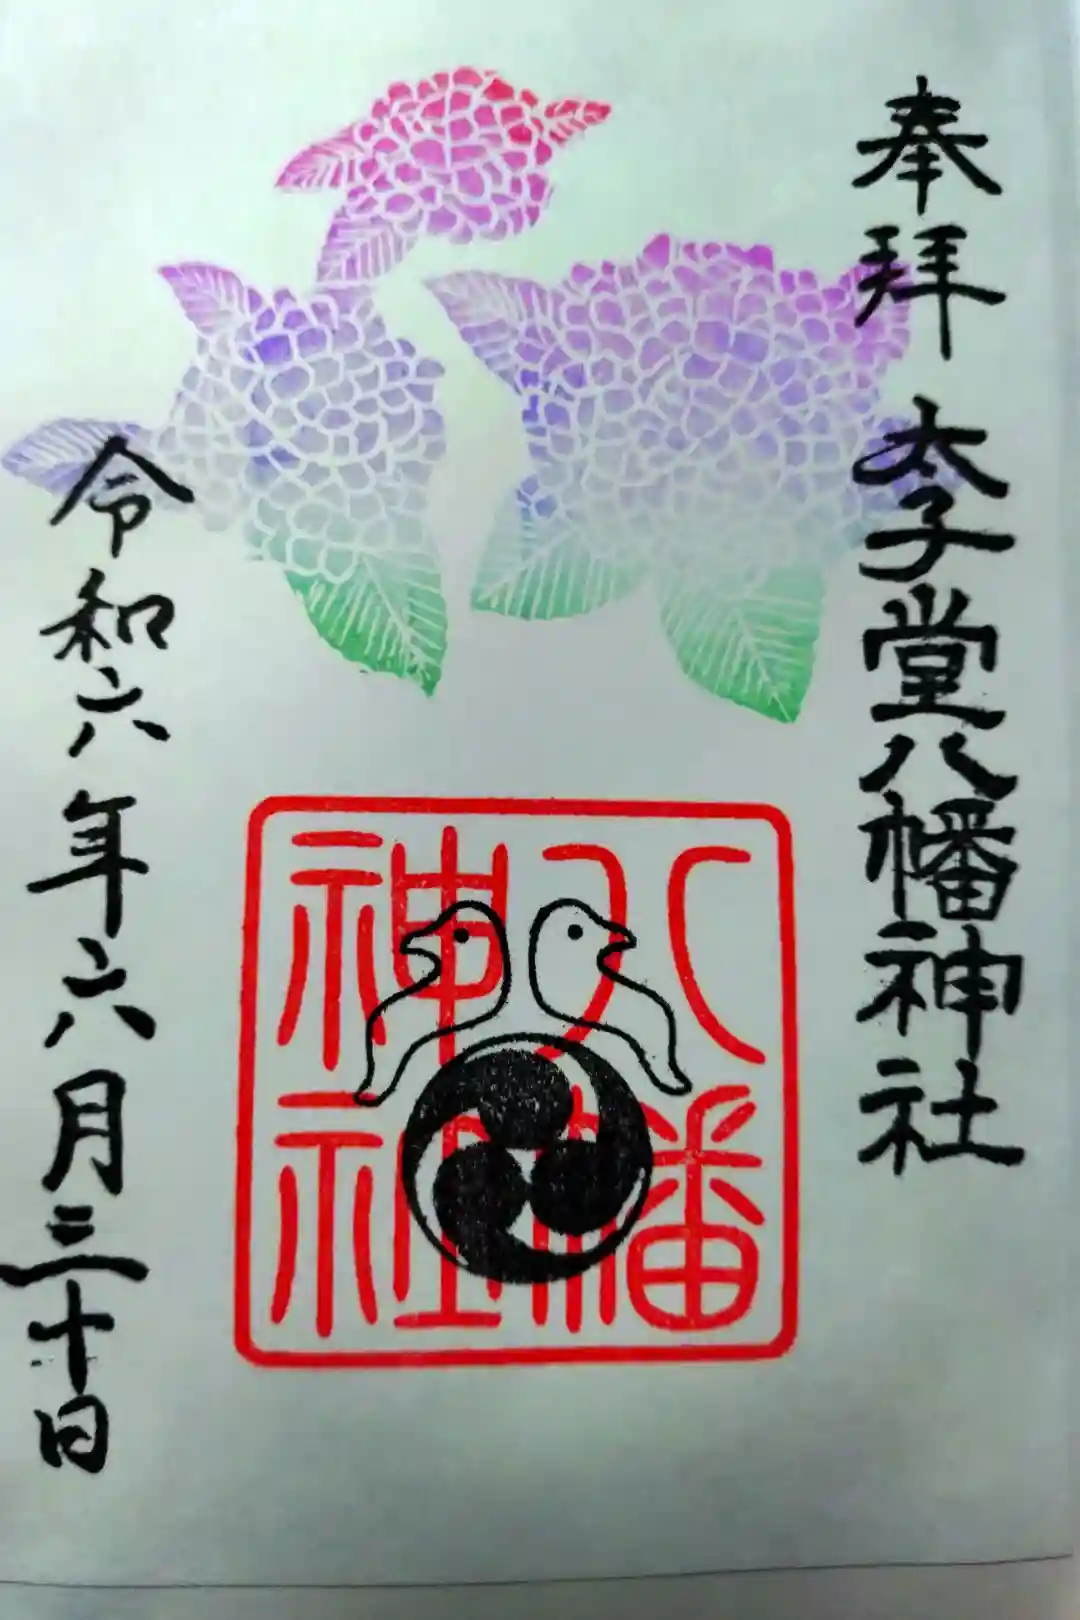 奉拝
太子堂八幡神社
八幡
神社
令和六年六月三十日